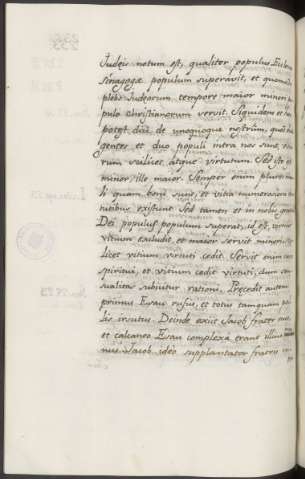 Judeis notum est, qualiter populus Ecclesiæ
sinagogæ populum superavit, et quomodo
plebs Judeorum tempore maior minori po
pulo christianorum servit. Siquidem et hoc
potest dici de unoquoque nostrum, quod duæ
gentes et duo populi intra nos sint, vitio
rum scilicet, atque virtutum. Sed iste est
minor, ille maior. Semper enim plures ma
li quam boni sunt, et vitia numerosiora vir
tutibus existunt. Sed tamen et in nobis gratia
Dei populus populum superat, id est, virtus
vitium excludit, et maior servit minori, sci
licet vitium virtuti cedit. Servit enim caro
spiritui, et vitium cedit virtuti, dum sen
sualitas subijcitur rationi. Precedit autem
primus Esau rufus, et totus tamquam pel
lis irsutus. Deinde exiit Jacob frater eius,
et calcaneo Esau complexa erant illius ma
nus. Jacob ideo supplantator fratris